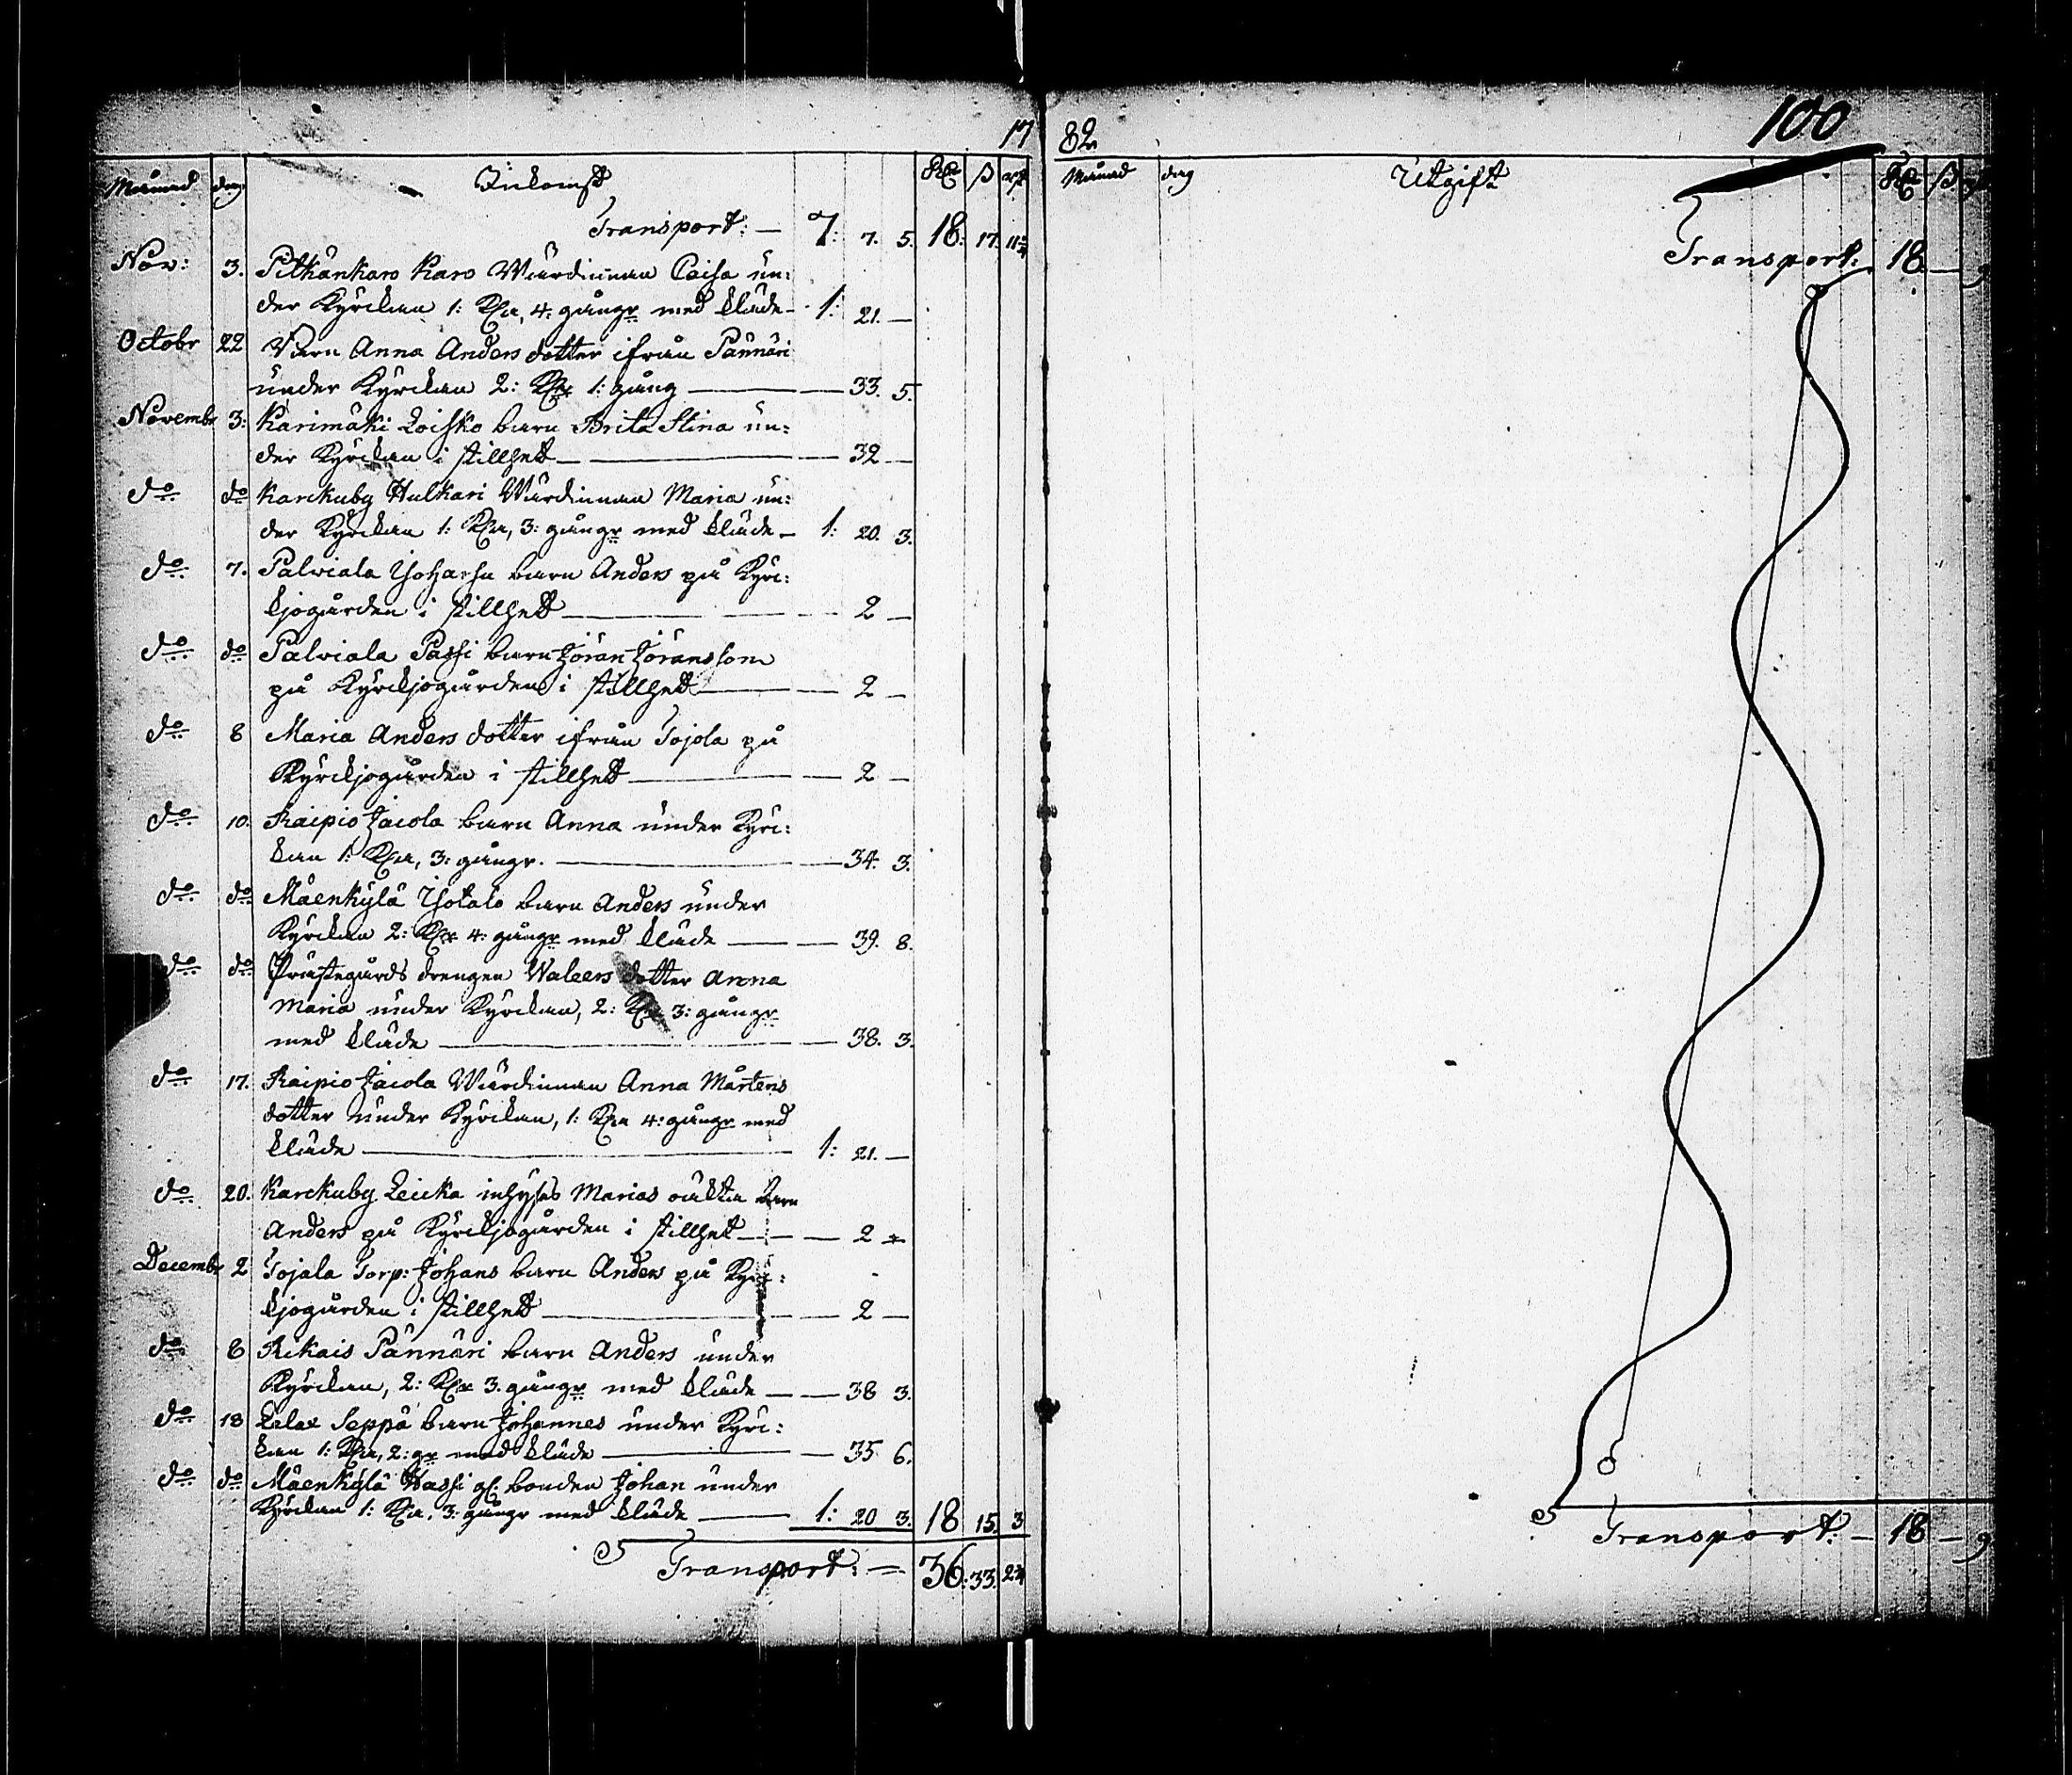 17
Månad dag Inkomst Rd ß rst
Transport: — 7: 7. 5. 18: 17. 11
Nov: 3. Pitkänkaro Karo Wärdinnan Caisa un:
der Kyrckan 1: Kla, 4: gångr med kläde — 1: 21. —
Octobr 22 Barn Anna Anders dotter ifrån Pännäri
under Kyrckan 2: 1: gång — 33. 5.
Novembr 3: Karimäki Loisko barn Brita Stina un:
der Kyrckan i stillhett — 32 —
do do Karckuby Hulkari Wärdinnan Maria un:
der Kyrckan 1: Kla, 3: gångr med kläde — 1: 20. 3.
do 7. Palviala barn Anders på Kyrc:
kjogården i stillhett — 2 —
do do Palviala Passi barn Jöran Jöransson
på Kyrckjogården i stillhett — 2 —
do 8 Maria Anders dotter ifrån Tojola på
Kyrckjogården i stillhett — 2 —
do 10. Raipio Jacola barn Anna under Kyrc:
kan 1: Kla, 3: gångr. — 34. 3.
do do Mäenkylä Yotalo barn Anders under
Kyrckan 2: 4: gångr med kläde — 39. 8.
do do Prästegårds drengen Waleens dotter Anna
Maria under Kyrckan, 2: 3: gångr
med kläde — 38. 3.
do 17. Raipio Jacola Wärdinnan Anna Mårtens
dotter under Kyrckan, 1: Kla 4: gångr med
kläde — 1: 21. —
do 20. Karckuby Leicka inhyses Marias oäkta barn
Anders på Kyrckjogården i stillhet — 2 —
Decembr 2 Tojala Torp: Johans barn Anders på Kyrc:
kjogården i stillhett — 2 —
do 8 Rekais Pännäri barn Anders under
Kyrckan, 2: 3. gångr med kläde — 38 3.
do 18 Lelax Seppä barn Johannes under Kyrc:
kan 1: Kla, 2: gr med kläde — 35 6.
do do Mäenkylä Hassi gl. bonden Johan under
Kyrckan 1: Kla, 3: gångr med kläde — 1: 20 3. 18 15. 3
Transport: — 36: 33.
82
100
Månad dag Utgift Rd ß
Transport: 18 — 9
Transport: — 18 — 9